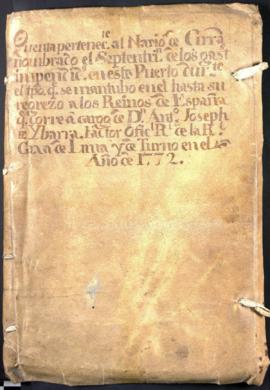 Quenta pertenec.te al Navio de Grra
nombrado el Septentrn. de los gast
en este Puerto dur.te
el tpo. q. se mantubo en el hasta su
regrezo a los Reinos de España
q. corre a cargo de Dn. Anto. Joseph
de Ybarra, Factor Ofic.l R.l de la R.l
Grra de Lima y de Turno en el
Año de 1772.